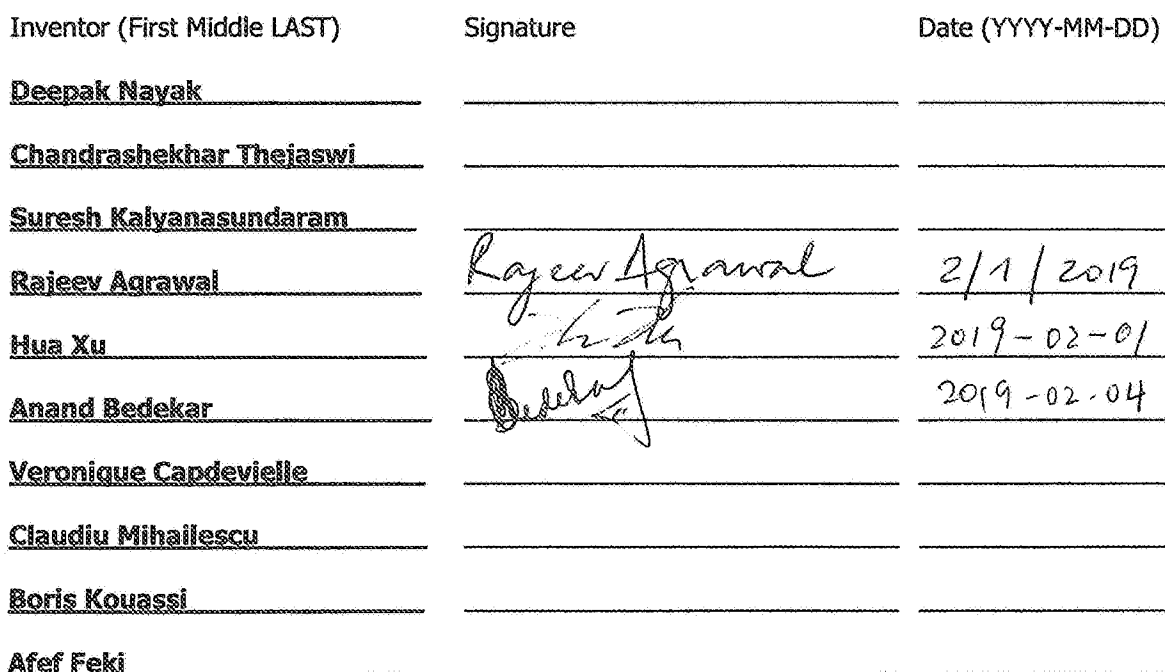 Inventor (First Middle LAST) Signature Date (YYYY-MM-DD)
Deepak Nayak
Chandrashekhar Thejaswi
Suresh Kalyanasundaram
Rajeev Agrawal Rajeev Agrawal 2/1/2019
Hua Xu 2019-02-01
Anand Bedekar Bedekar 2019-02-04
Veronique Capdevielle
Claudiu Mihailescu
Boris Kouassi
Afef Feki